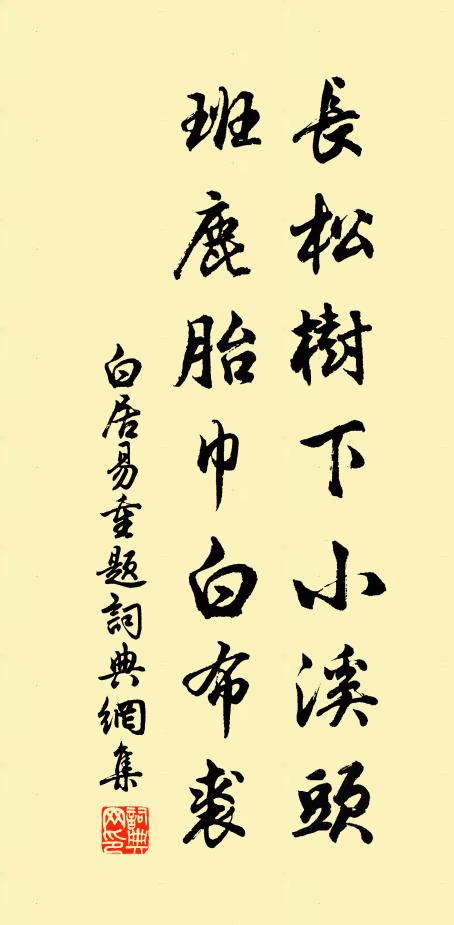 長松樹下小溪頭
班鹿胎巾白布裘
白居易重題詞典網集
詞典
网印